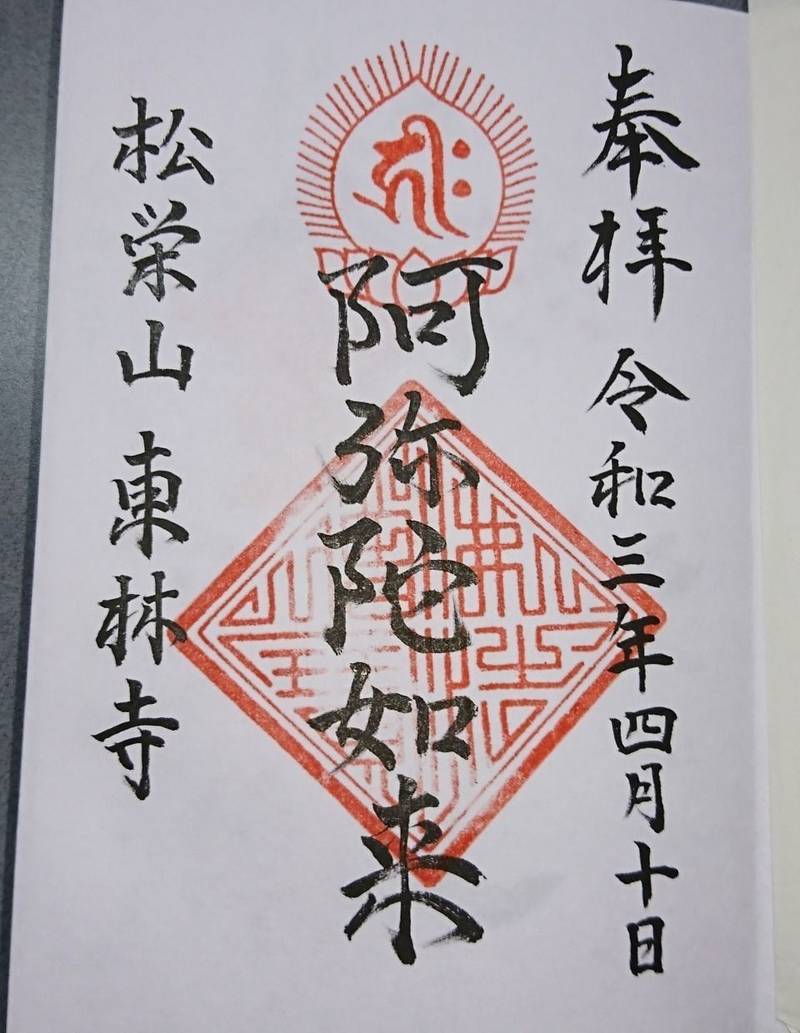 奉拝 令和三年四月十日
阿弥陀如来
松栄山 東林寺